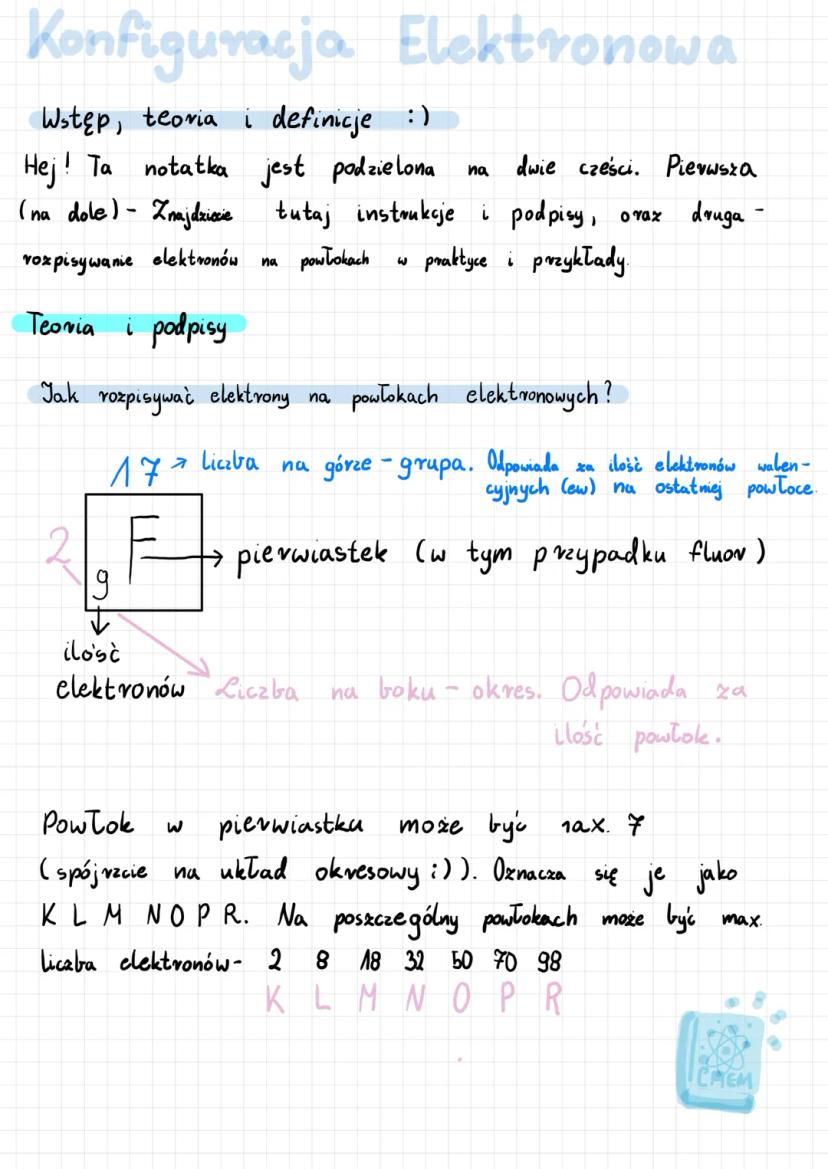 Konfiguracja Elektronowa
Wstęp, teoria i definicje :)
Hej! Ta notatka jest podzielona na dwie cześci. Pierwsza
(na dole) - Znajdziecie tutaj instrukcje i podpisy, oraz druga -
rozpisywanie elektronów na powłokach w praktyce i przykłady.
Teoria i podpisy
Jak rozpisywać elektrony na powłokach elektronowych?
17 → liczba na górze - grupa. Odpowiada za ilość elektronów walen-
cyjnych (ew) na ostatniej powłoce.
2
F → pierwiastek (w tym przypadku fluor)
9
ilość
elektronów
Liczba na boku - okres. Odpowiada za
ilość powłok.
Powłok w pierwiastku może być max. 7
(spójrzcie na układ okresowy ;)). Oznacza się je jako
K L M N O P R. Na poszczególny powłokach może być max.
liczba elektronów- 2 8 18 32 50 70 98
K L M N O P R
CHEM